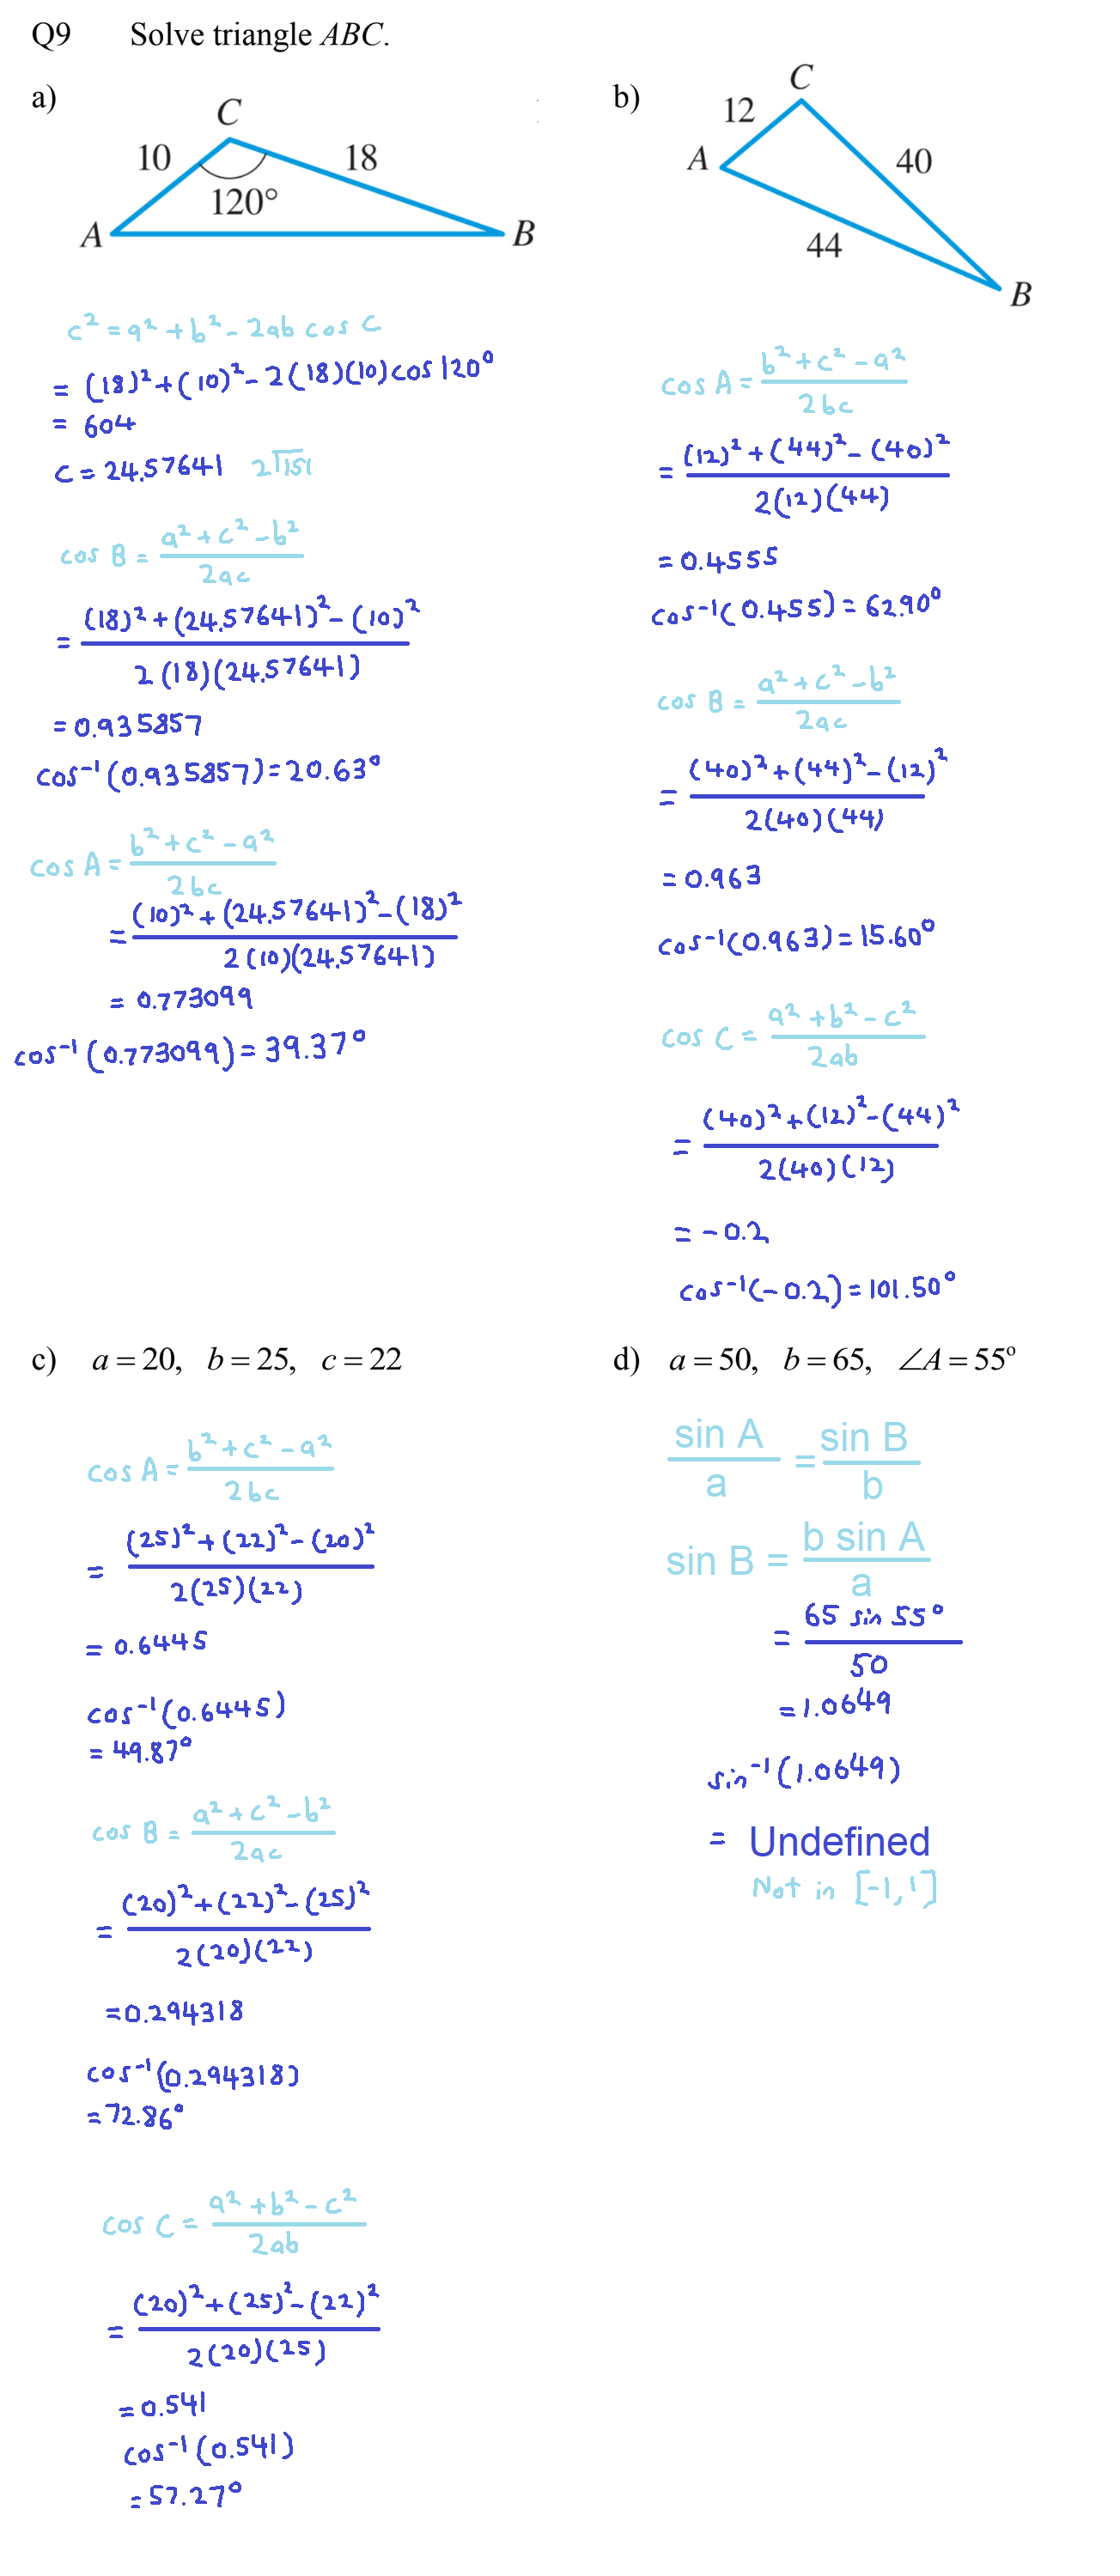 Q9 Solve triangle ABC.
a)
C
10
18
120°
A
B
c² = a² + b² - 2ab cos C
= (18)² + (10)² - 2(18)(10)cos120°
= 604
c = 24.57641 2√151
cos B = (a² + c² - b²) / 2ac
= ((18)² + (24.57641)² - (10)²) / 2(18)(24.57641)
= 0.935857
cos⁻¹(0.935857) = 20.63°
cos A = (b² + c² - a²) / 2bc
= ((10)² + (24.57641)² - (18)²) / 2(10)(24.57641)
= 0.773099
cos⁻¹(0.773099) = 39.37°
b)
C
12
A
40
44
B
cos A = (b² + c² - a²) / 2bc
= ((12)² + (44)² - (40)²) / 2(12)(44)
= 0.4555
cos⁻¹(0.455) = 62.90°
cos B = (a² + c² - b²) / 2ac
= ((40)² + (44)² - (12)²) / 2(40)(44)
= 0.963
cos⁻¹(0.963) = 15.60°
cos C = (a² + b² - c²) / 2ab
= ((40)² + (12)² - (44)²) / 2(40)(12)
= -0.2
cos⁻¹(-0.2) = 101.50°
c) a = 20, b = 25, c = 22
cos A = (b² + c² - a²) / 2bc
= ((25)² + (22)² - (20)²) / 2(25)(22)
= 0.6445
cos⁻¹(0.6445)
= 49.87°
cos B = (a² + c² - b²) / 2ac
= ((20)² + (22)² - (25)²) / 2(20)(22)
= 0.294318
cos⁻¹(0.294318)
= 72.86°
cos C = (a² + b² - c²) / 2ab
= ((20)² + (25)² - (22)²) / 2(20)(25)
= 0.541
cos⁻¹(0.541)
= 57.27°
d) a = 50, b = 65, ∠A = 55°
sin A / a = sin B / b
sin B = b sin A / a
= 65 sin 55° / 50
= 1.0649
sin⁻¹(1.0649)
= Undefined
Not in [-1,1]